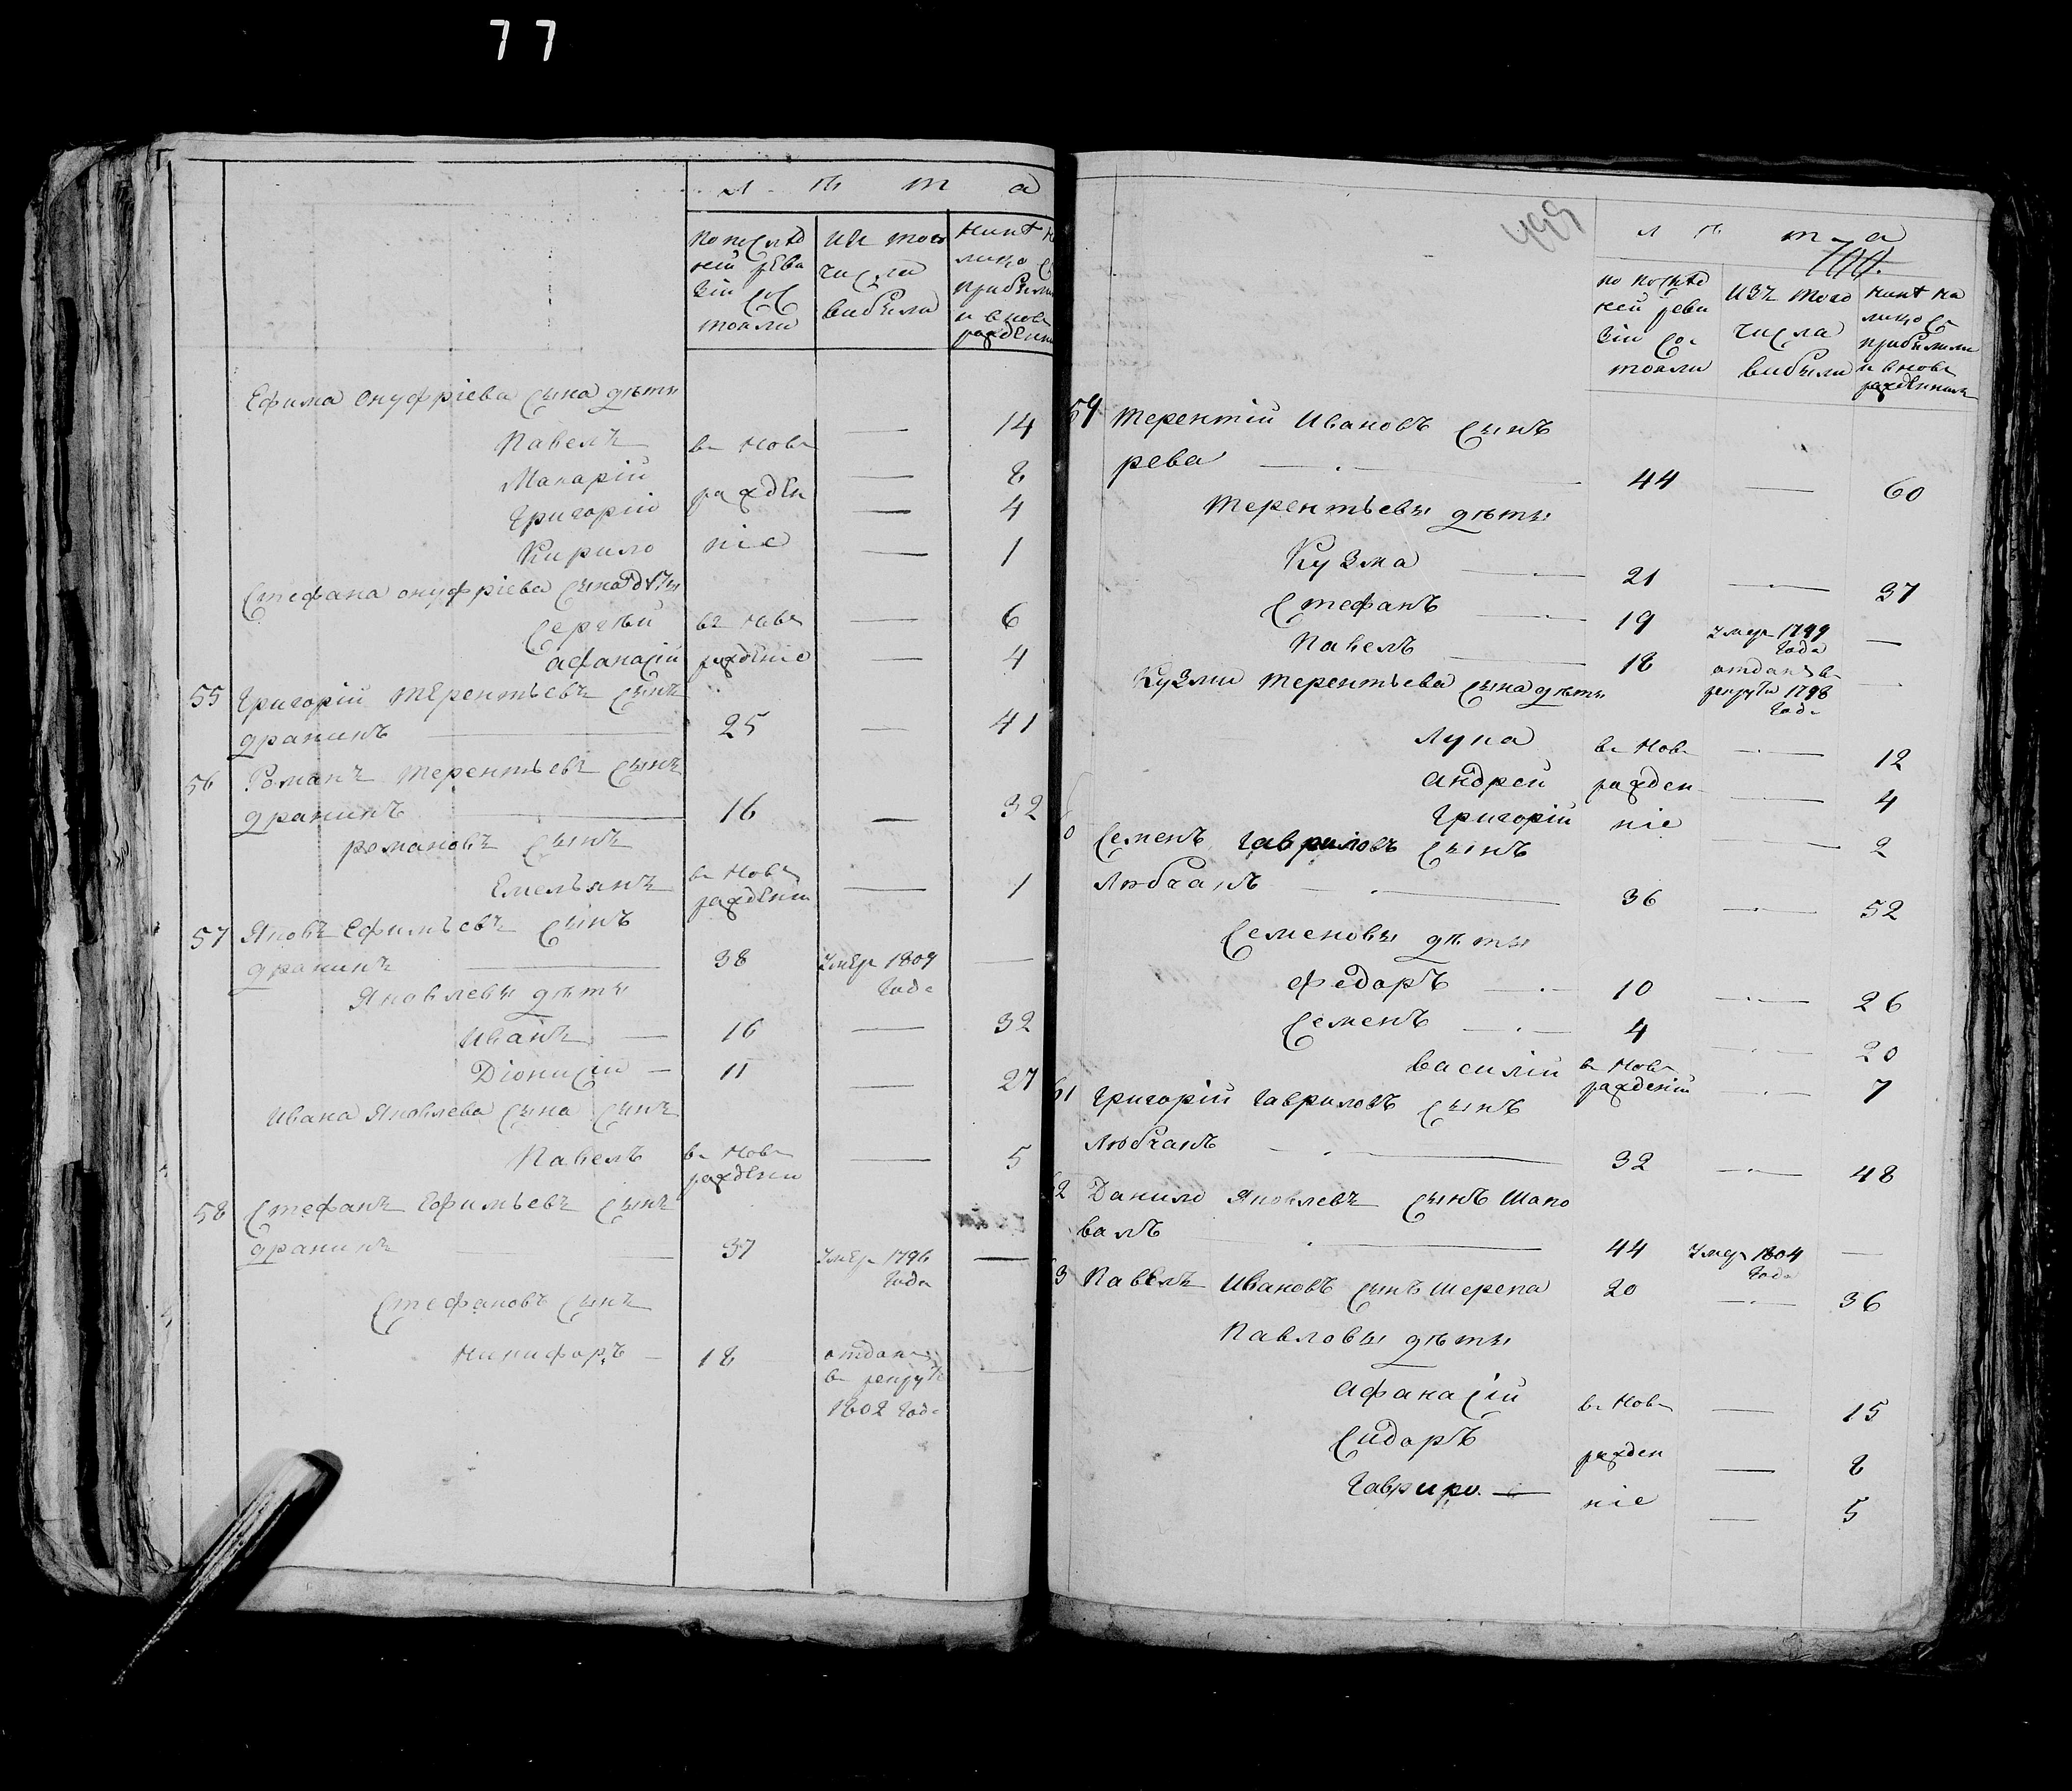 77
л ѣ т а
По послѣд
ней реви
зіи сос
тояли
изъ того
числа
выбыли
нинѣ н
лицо съ
прибыли
и внов
рожденн
Ефима Онуфріева сына дѣти
Павелъ въ нов — 14
Макарій рожден — 8
Григорій — 4
Кирило ніе — 1
Стефана онуфріева сына дѣти
Сергѣй въ нов — 6
афанасій рожденіе — 4
55 Григорій терентьевъ сынъ
драникъ 25 — 41
56 Романъ терентьевъ сынъ
драникъ 16 — 32
романовъ сынъ
Емельянъ въ нов рожденіи — 1
57 Яковъ Ефимьевъ сынъ
драникъ 38 умер 1809 года —
Яковлевы дѣти
Иванъ — 16 — 32
Діонисій — 11 — 27
Ивана Яковлева сына сынъ
Павелъ въ нов рожденіи — 5
58 Стефанъ Ефимьевъ сынъ
драникъ 37 умер 1796 года —
Стефановъ сынъ
Никифоръ — 18 отданъ в рекруты 1802 года —
499
л ѣ т а
по послѣд
ней реви
зіи сос
тояли
изъ того
числа
выбыли
нинѣ на
лицо съ
прибылими
и внов
рожденними
59 Терентій Ивановъ сынъ
рева — 44 — 60
Терентьевы дѣти
Кузма — 21 — 37
Стефанъ — 19 умер 1799 года —
Павелъ — 18 отданъ в рекруты 1798 года —
Кузми терентьева сына дѣти
Лука въ нов — 12
андрей рожден — 4
Григорій ніе — 2
Семенъ гавриловъ сынъ
Любчанъ — 36 — 52
Семеновы дѣти
Федоръ — 10 — 26
Семенъ — 4 — 20
василій въ нов рожденій — 7
61 Григорій гавриловъ сынъ
Любчанъ — 32 — 48
2 Данило Яковлевъ сынъ Шапо
валъ — 44 умер 1804 года —
3 Павелъ Ивановъ сынъ шерепа 20 — 36
Павловы дѣти
афанасій въ нов — 15
Сидоръ рожден — 8
гаврило — ніе — 5